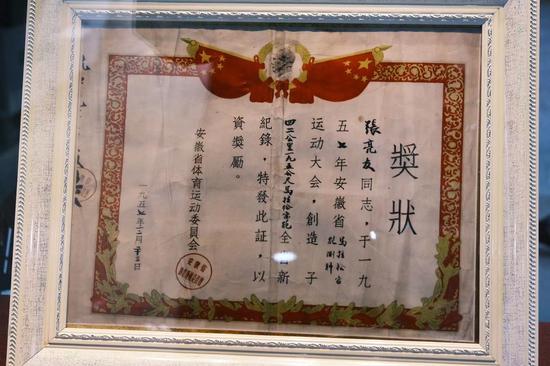 獎狀
張亮友同志，于一九
五七年安徽省馬拉松
运动大会，創造了
四二公里一九五公尺馬拉松賽跑全国新
紀錄，特發此証，以
資獎勵。
安徽省体育运动委員会
一九五七年十二月日